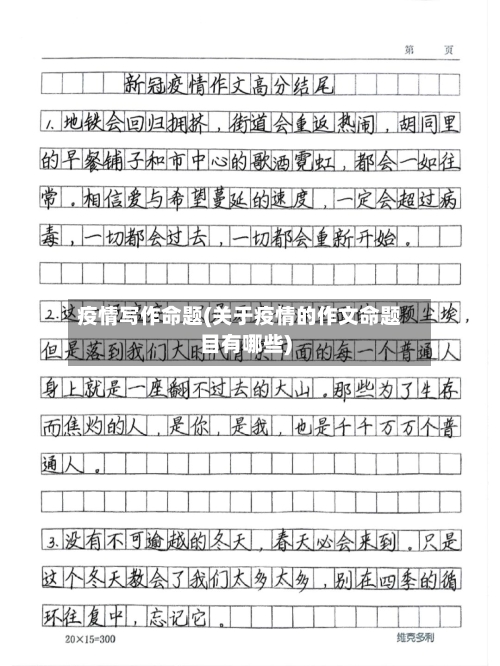 第 页
新冠疫情作文高分结尾
1.地铁会回归拥挤，街道会重返热闹，胡同里
的早餐铺子和市中心的歌酒霓虹，都会一如往
常。相信爱与希望蔓延的速度，一定会超过病
毒，一切都会过去，一切都会重新开始。
2.这 颗尘埃，
疫情写作命题(关于疫情的作文命题
但是落到我们大 面的每一个普通人
目有哪些)
身上就是一座翻不过去的大山。那些为了生存
而焦灼的人，是你，是我，也是千千万万个普
通人。
3.没有不可逾越的冬天，春天必会来到。只是
这个冬天教会了我们太多太多，别在四季的循
环往复中，忘记它。
20×15=300 维克多利